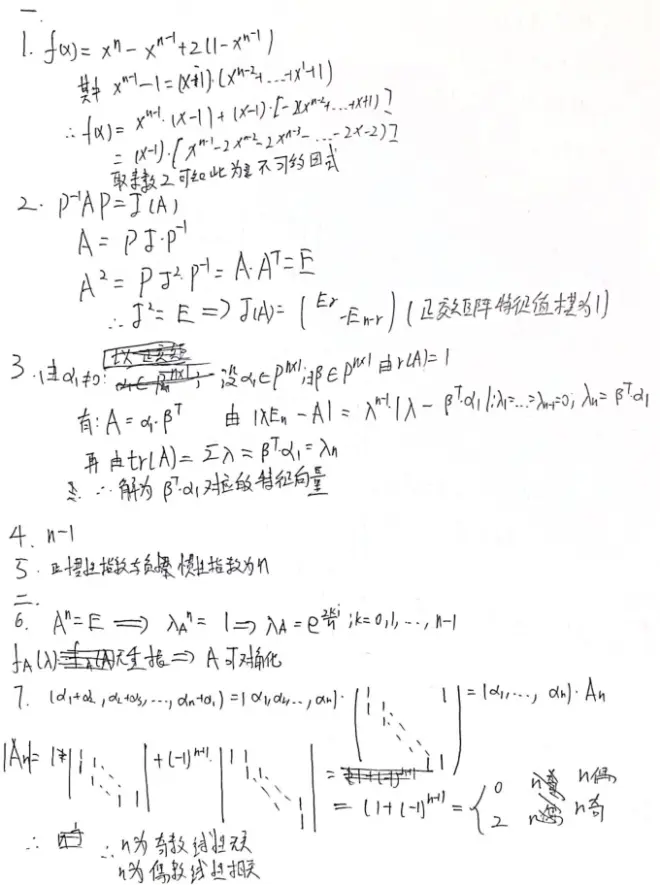 一
1. f(x) = xⁿ - xⁿ⁻¹ + 2(1 - xⁿ⁻¹)
其中 xⁿ⁻¹ - 1 = (x-1)·(xⁿ⁻² + ... + x¹ + 1)
∴ f(x) = xⁿ⁻¹·(x-1) + (x-1)·[-2(xⁿ⁻² + ... + x + 1)]
= (x-1)·[xⁿ⁻¹ - 2xⁿ⁻² - 2xⁿ⁻³ - ... - 2x - 2]
取素数2可知此为 不可约因式
2. P⁻¹AP = J(A)
A = PJ·P⁻¹
A² = PJ²·P⁻¹ = A·Aᵀ = E
∴ J² = E => J(A) = (Er -En-r) (正交矩阵特征值模为1)
3. 由 α₁≠0: 设 α₁∈Pⁿˣ¹, ∃β∈Pⁿˣ¹ 由 r(A) = 1
有: A = α₁·βᵀ 由 |λEn - A| = λⁿ⁻¹|λ - βᵀ·α₁|; λ₁ = ... = λn-1 = 0, λn = βᵀ·α₁
再由 tr(A) = Σλ = βᵀ·α₁ = λn
∴ 解为 βᵀ·α₁ 对应的特征向量
4. n-1
5. 正惯性指数与负惯性指数为n
二.
6. Aⁿ = E => λAⁿ = 1 => λA = ; k = 0, 1, ..., n-1
fA(λ) 无重根 => A 可对角化
7. (α₁+α₂, α₂+α₃, ..., αn+α₁) = (α₁, α₂, ..., αn)· | 1 1 1 1 1 | = (α₁, ..., αn)·An
|An| = 1* | 1 1 1 1 | + (-1)ⁿ⁺¹ | 1 1 1 1 |
= (1 + (-1)ⁿ⁺¹ = { 0 n偶
2 n奇
∴ ∴ n为奇数线性无关
n为偶数线性相关